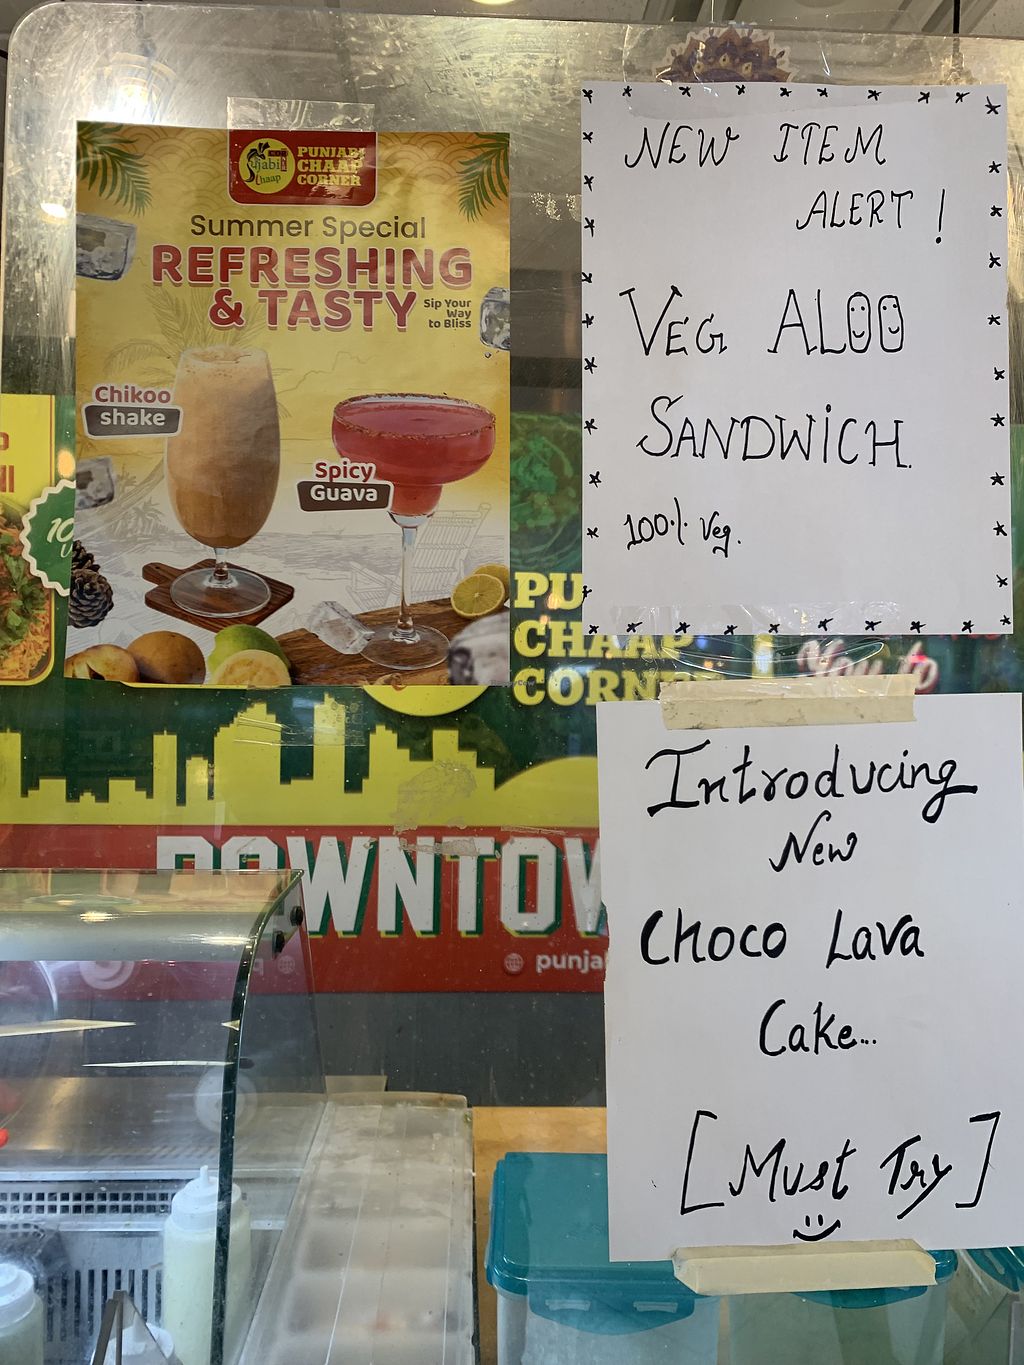 PUNJABI
CHAAP
CORNER
Summer Special
REFRESHING
& TASTY
Sip Your
Way
to Bliss
Chikoo
shake
Spicy
Guava
NEW ITEM
ALERT !
VEG ALOO
SANDWICH.
100% Veg.
PU
CHAAP
CORNE
You to
Introducing
New
Choco Lava
Cake...
[Must Try]
DOWNTOW
punja